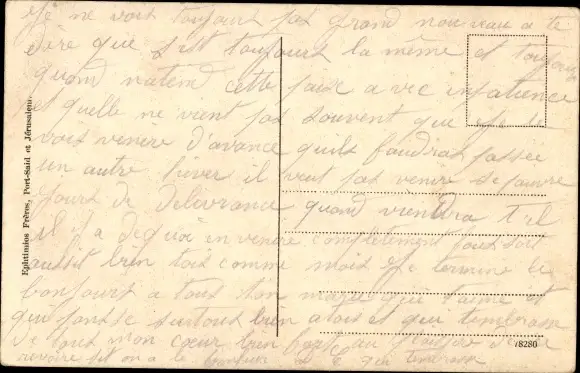 Je ne vois toujours pas grand nouveau a te
dire que s'est toujours la même et toujours
quand natend cette paix avec inpatience
et quelle ne vient pas souvent que je le
vois venire d'avance quils faudras passée
un autre hiver il veut pas venire se pauvre
jours de delivrance quand viendra t'il
il y a de quoi en venire completement fous sort
aussit bien tois comme mois Je termine le
bonjours a tous ton marie qui t'aime et
qui panse surtous bien a tois et qui tembrasse
de tous mon cœur bien fort au plaisire de
revoire sit on a le bonheur qui tembrasse
Ephtimios Frères, Port-Said et Jérusalem.
78280